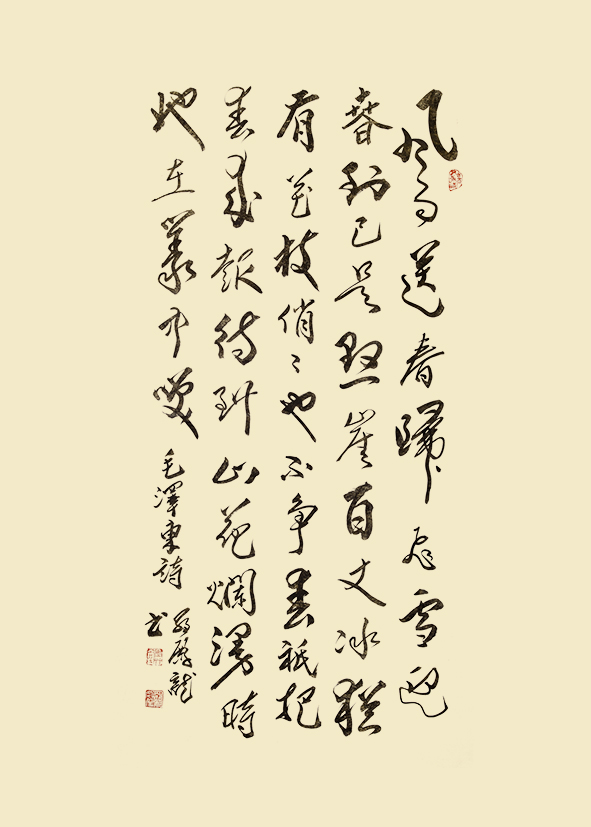 風雨送春歸飛雪迎
春到已是懸崖百丈冰猶
有花枝俏〻也不争春祇把
春來報待到山花爛漫時
她在叢中笑
毛澤東詩
龍
书